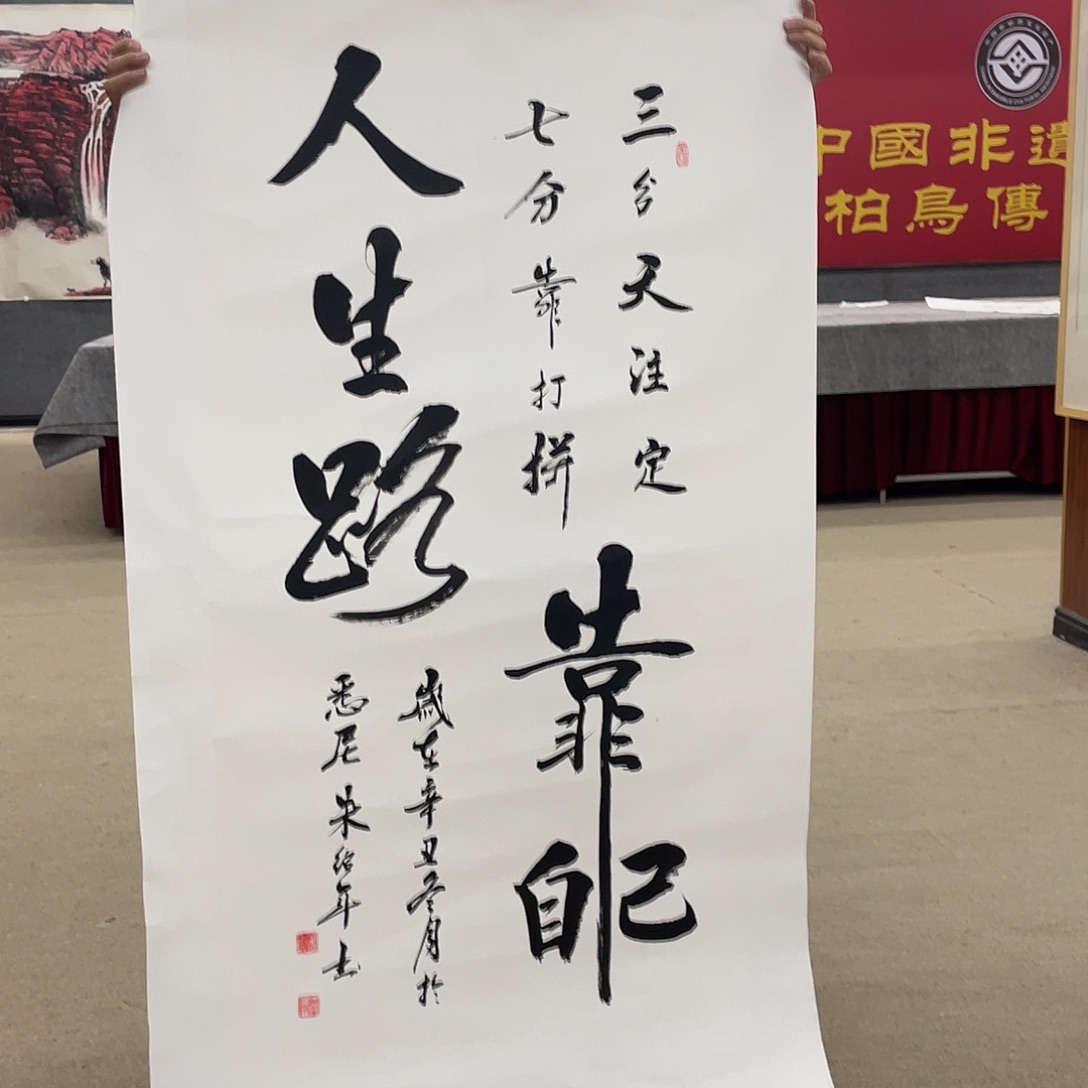 三分天注定
七分靠打拼
靠自己
人生路
歲在辛丑冬月於
悉尼朱紹年书
中國非遺
柏鳥傳